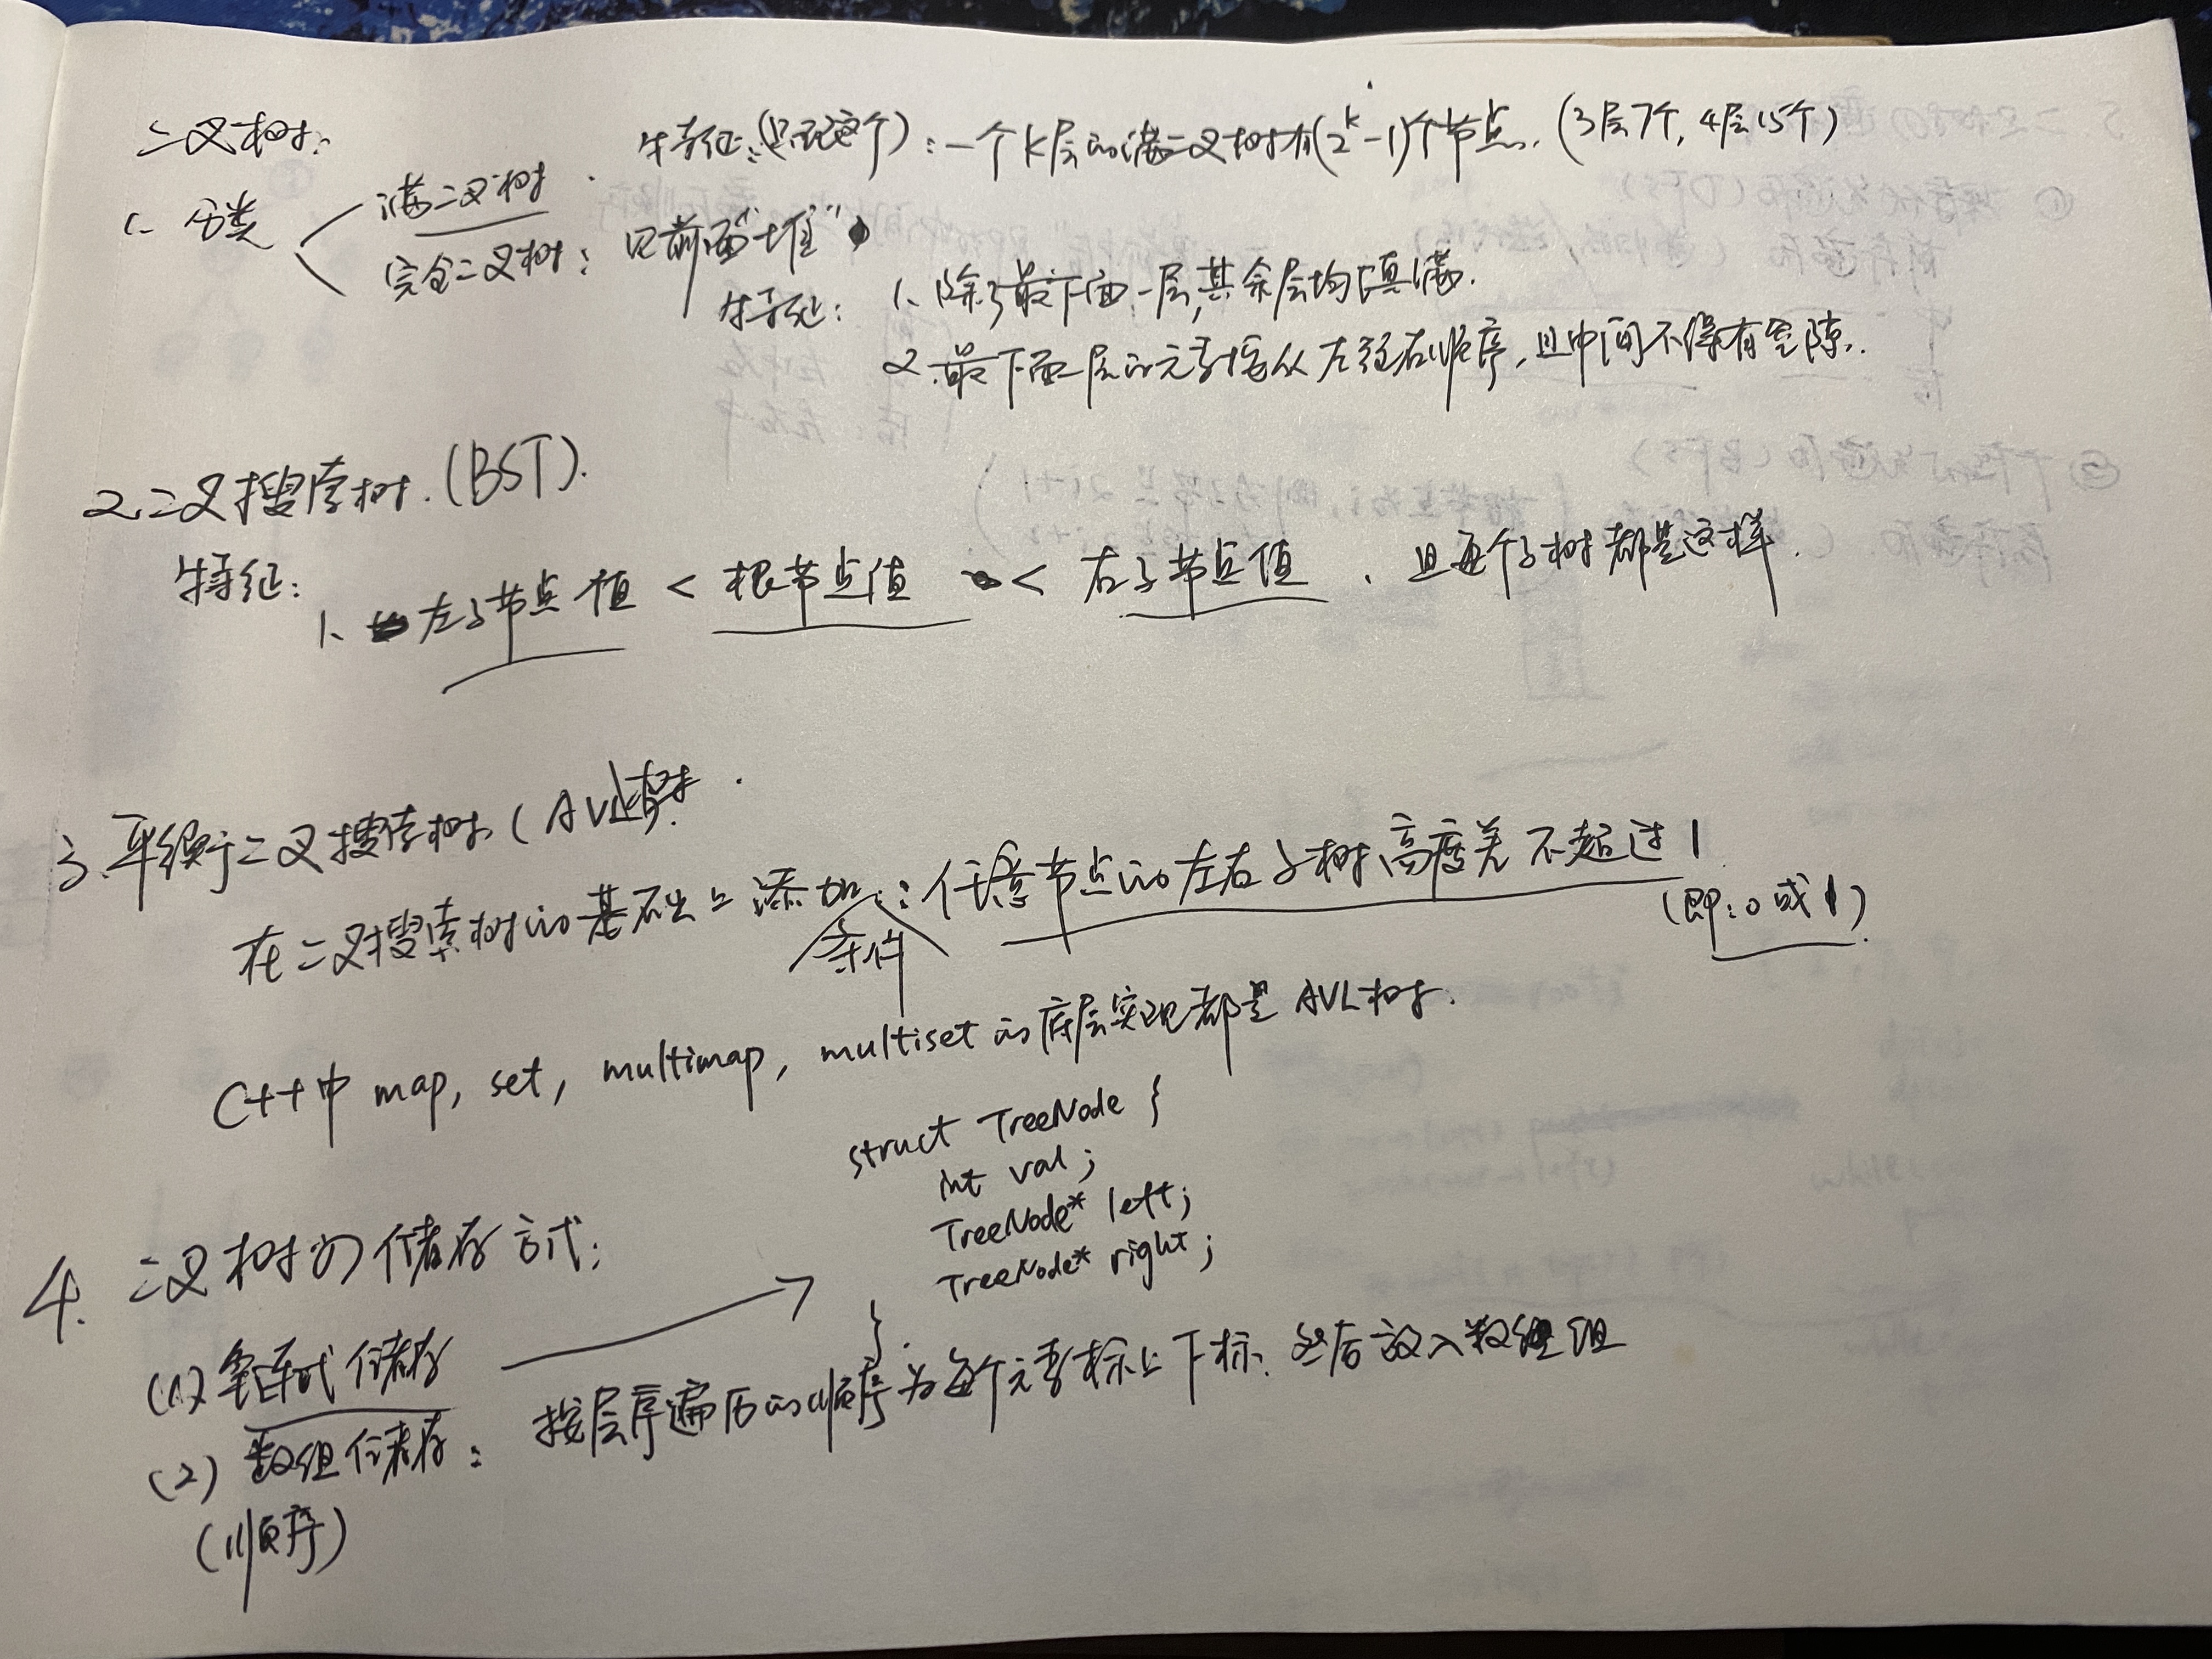 二叉树:
1. 分类
满二叉树. 特征:(只一个):一个k层的满二叉树有(2^k-1)个节点. (3层7个, 4层15个)
完全二叉树: 见前面"堆"
特征: 1、除了最下面一层,其余层均填满.
2.最下面一层的元素按从左往右顺序,且中间不得有空隙.
2.二叉搜索树.(BST).
特征:
1、左子节点值 < 根节点值 < 右子节点值、且每个子树都是这样.
3.平衡二叉搜索树(AVL树).
在二叉搜索树的基础上添加条件:任意节点的左右子树高度差不超过1
(即:0或1)
C++中 map, set, multimap, multiset的底层实现都是AVL树.
4. 二叉树的储存方式:
(1) 链式储存
struct TreeNode {
int val;
TreeNode* left;
TreeNode* right;
}.
(2) 数组储存: 按层序遍历的顺序为每个元素标上下标.然后放入数组
(顺序)